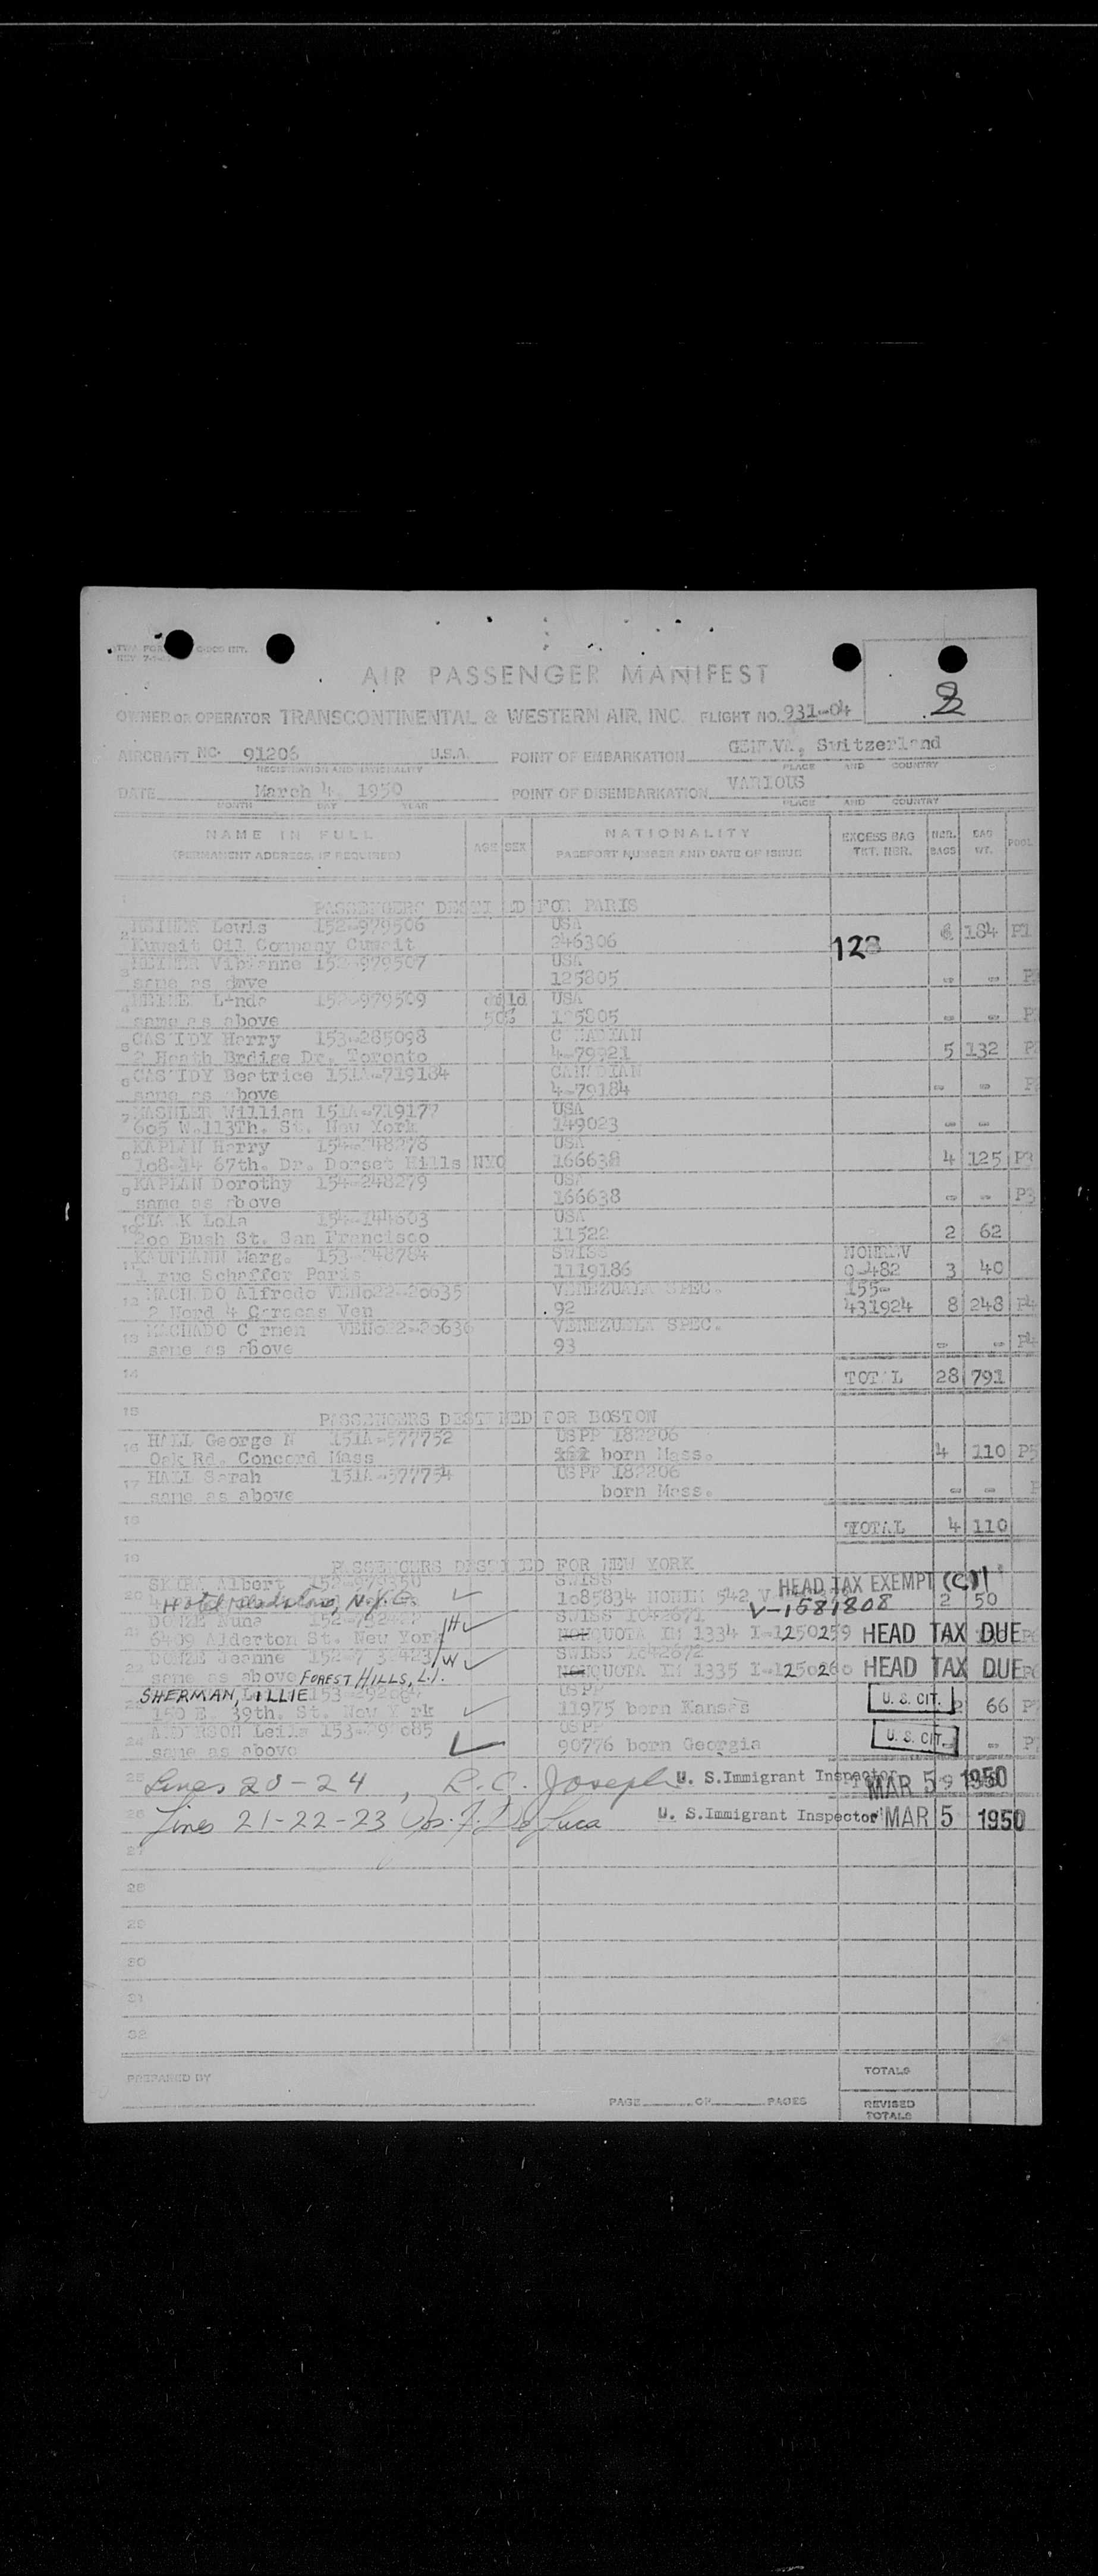 AIR PASSENGER MANIFEST
2
OWNER OR OPERATOR TRANSCONTINENTAL & WESTERN AIR, INC. FLIGHT NO. 931-04
AIRCRAFT NO. 91206 U.S.A. POINT OF EMBARKATION GENEVA, Switzerland
REGISTRATION AND NATIONALITY PLACE AND COUNTRY
DATE March 4, 1950 POINT OF DISEMBARKATION VARIOUS
MONTH DAY YEAR PLACE AND COUNTRY
NAME IN FULL AGE SEX NATIONALITY EXCESS BAG NBR. BAG POOL
(PERMANENT ADDRESS, IF REQUIRED) PASSPORT NUMBER AND DATE OF ISSUE TKT. NBR. BAGS WT.
PASSENGERS DESTI ED FOR PARIS
Lewis 152-979506 USA
2 Kuwait Oil Company 246306 128 184
3 152-979507 USA
same as 125805 - -
152-979509 USA
4 same as above 50% 125805 - -
5 CAS IDY Harry 153-285098 C NADIAN
2 Heath Brdige Dr. Toronto 4-79921 5 132
6 CAS IDY Beatrice 151A-719184 CANADIAN
same as above 4-79184 - -
7 William 151A-719177 USA
605 W.113Th. St. New York 149023 - -
8 KAPLAN Harry 154-248278 USA
108-14 67th. Dr. Dorset Hills NYC 166638 4 125 P3
9 KAPLAN Dorothy 154-248279 USA
same as above 166638 - - P3
10 CLA K Lola 154-144603 USA
200 Bush St. San Francisco 11522 2 62
11 KAUFMANN Marg. 153-248784 SWISS NONREV
1 rue Schaffer Paris 1119186 0-482 3 40
12 MACHADO Alfredo VEN022-20635 VENEZUALA SPEC. 155-
2 Nord 4 Caracas Ven 92 431924 8 248 P4
13 MACHADO C rmen VEN022-20636 VENEZUALA SPEC.
same as above 93 - - P4
14 TOTAL 28 791
15 PASSENGERS DESTINED FOR BOSTON
16 HALL George N 151A-577752 USPP 182206
Oak Rd. Concord Mass born Mass. 4 110 P5
17 HALL Sarah 151A-577754 USPP 182206
same as above born Mass. - -
18 TOTAL 4 110
19 PASSENGERS DESTINED FOR NEW YORK
20 Albert SWISS HEAD TAX EXEMPT (C)
Hotel N.Y.C. 1085834 NONIM 542 V-1581808 2 50
21 DONZE SWISS 1042671
6409 Alderton St. New York H QUOTA IM 1334 I-1250259 HEAD TAX DUE
22 DONZE Jeanne SWISS 1042672
same as above FOREST HILLS, L.I. W QUOTA IM 1335 I-1250260 HEAD TAX DUE
SHERMAN, LILLIE USPP U. S. CIT.
150 E. 39th. St. New Y rk 11975 born Kansas 2 66
24 ANDERSON Leila USPP U. S. CIT.
same as above 90776 born Georgia -
25 Lines 20-24, R.C. Joseph U. S. Immigrant Inspector MAR 5 1950
26 Lines 21-22-23 U. S. Immigrant Inspector MAR 5 1950
27
28
29
30
31
32
PREPARED BY TOTALS
PAGE OF PAGES REVISED
TOTALS